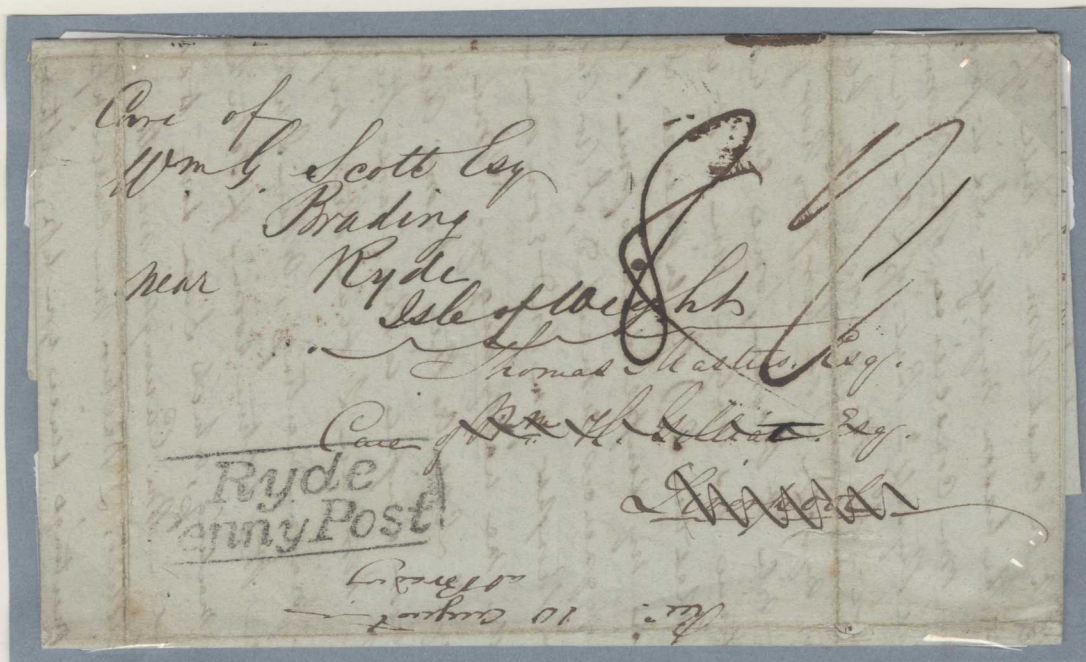 Care of
Wm G. Scott Esq
Brading
near Ryde
Isle of Wight
Thomas Masters. Esq.
Care of Wm. H. Esq.
Ryde
Penny Post
8
Rec.
10 August
at Brading